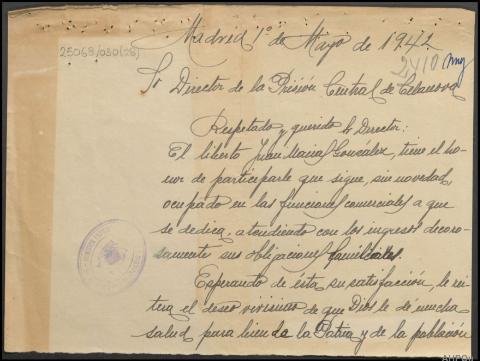 Madrid 1º de Mayo de 1942
25068/030(28)
2410
Sr Director de la Prisión Central de Celanova
Respetado y querido Sr Director:
El liberto Juan Macial González, tiene el ho-
nor de participarle que sigue, sin novedad,
ocupado en las funciones comerciales a que
se dedica, atendiendo con los ingresos decoro-
samente sus obligaciones familiales.
Esperando de ésta su satisfacción, le rei
tera el deseo vivisimo de que Dios le dé mucha
salud para bien de la Patria y de la población